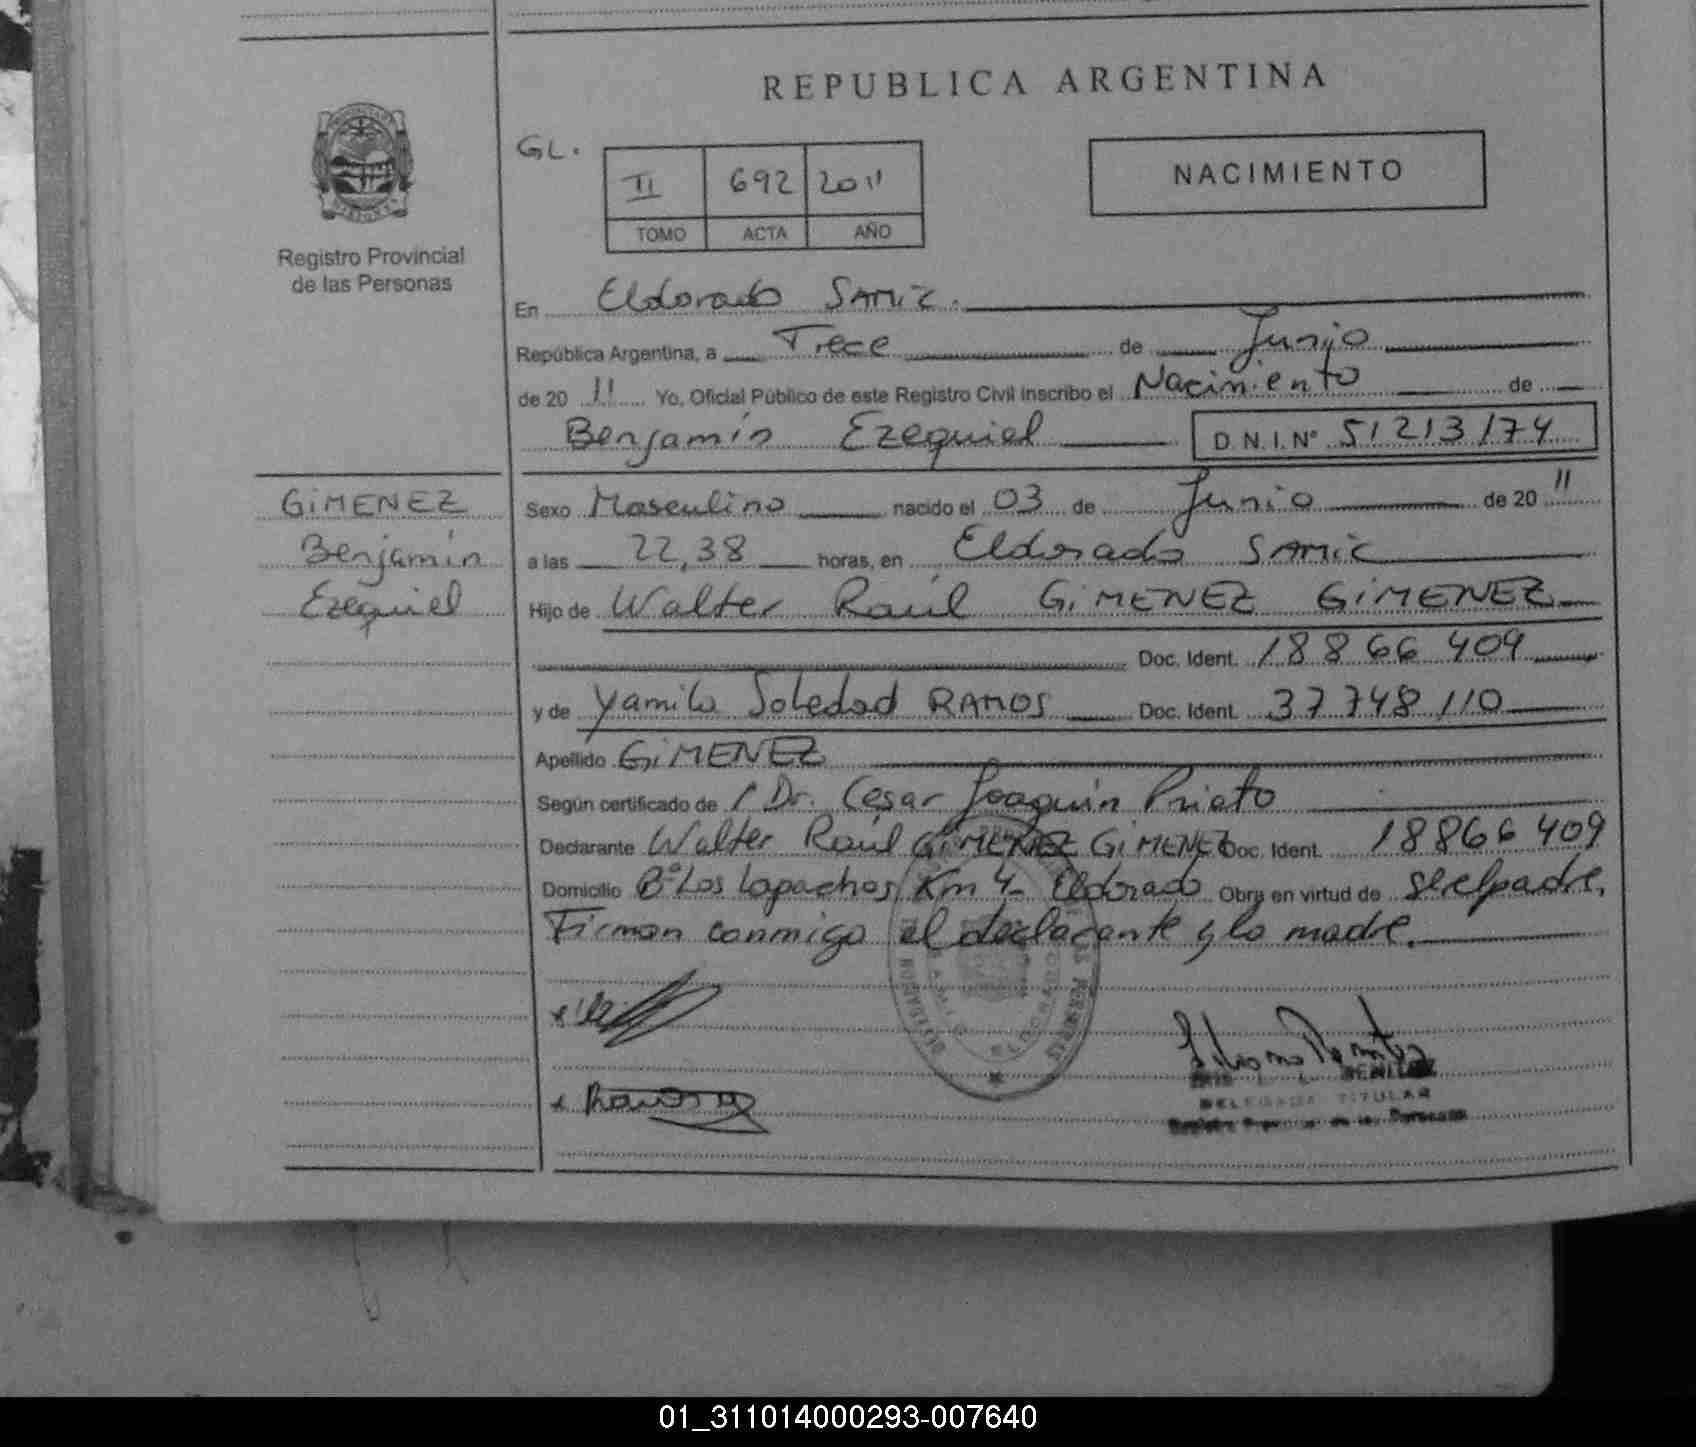 REPUBLICA ARGENTINA
GL.
II 692 2011
TOMO ACTA AÑO
NACIMIENTO
Registro Provincial
de las Personas
En Eldorado SAMIC.
República Argentina, a Trece de Junio
de 20 11 Yo, Oficial Público de este Registro Civil inscribo el Nacimiento de
Benjamín Ezequiel D.N.I.N° 51213174
GIMENEZ
Benjamín
Ezequiel
Sexo Masculino nacido el 03 de Junio de 20 11
a las 22,38 horas, en Eldorado SAMIC
Hijo de Walter Raúl GIMENEZ GIMENEZ
Doc. Ident. 18866409
y de Yamila Soledad RAMOS Doc. Ident. 37748110
Apellido GIMENEZ
Según certificado de / Dr. César Joaquín Prieto
Declarante Walter Raúl GIMENEZ GIMENEZ Doc. Ident. 18866409
Domicilio B° Los Lapachos Km 4- Eldorado Obra en virtud de ser el padre.
Firman conmigo el declarante y la madre.
DELEGADA TITULAR
01_311014000293-007640